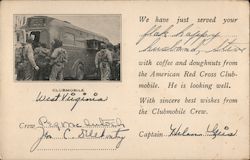 We have just served your
flak happy
husband, Steve
with coffee and doughnuts from
the American Red Cross Club-
mobile. He is looking well.
With sincere best wishes from
the Clubmobile Crew.
Captain Helen
CLUBMOBILE
West Virginia
Crew